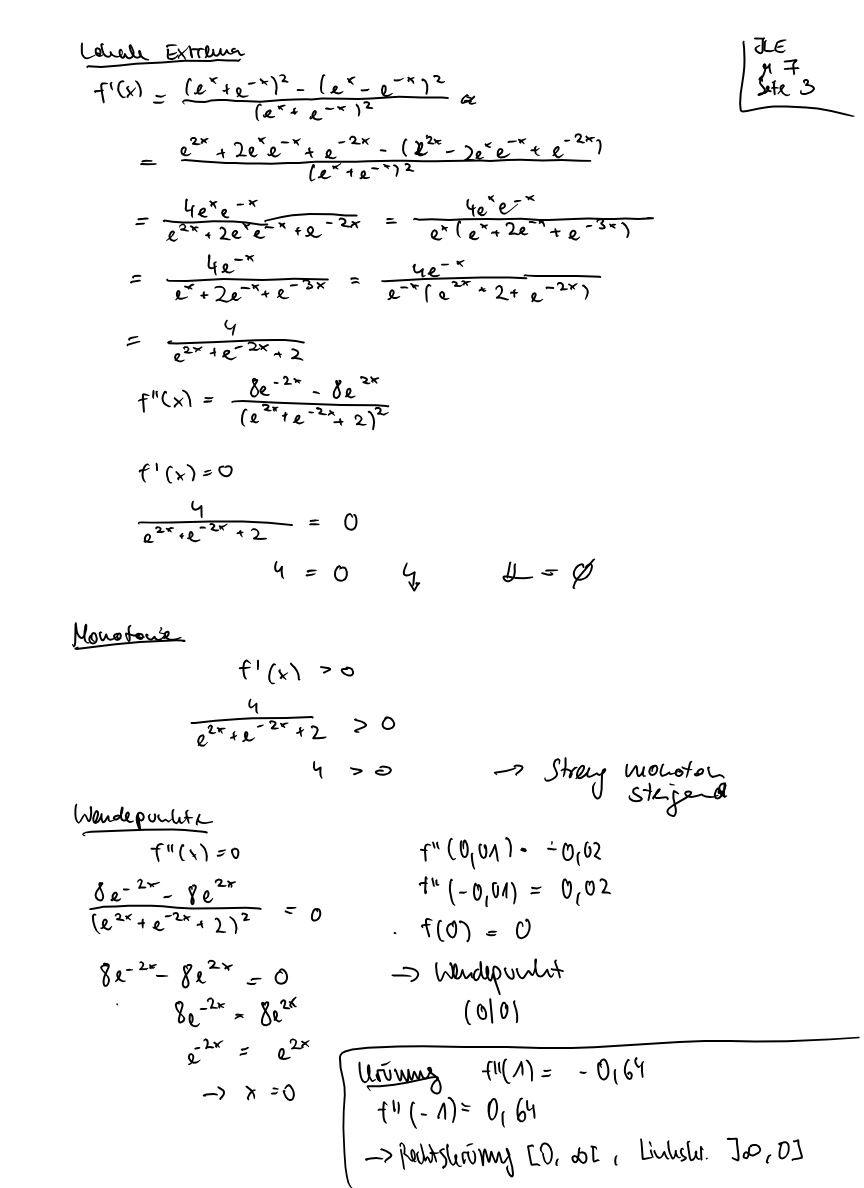 Lokale Extrema
JLE
M 7
Seite 3
f'(x) = ((e^x + e^-x)² - (e^x - e^-x)²) / (e^x + e^-x)²
= (e^2x + 2e^x e^-x + e^-2x - (e^2x - 2e^x e^-x + e^-2x)) / (e^x + e^-x)²
= 4e^x e^-x / (e^2x + 2e^x e^-x + e^-2x) = 4e^x e^-x / (e^x (e^x + 2e^-x + e^-3x))
= 4e^-x / (e^x + 2e^-x + e^-3x) = 4e^-x / (e^-x (e^2x + 2 + e^-2x))
= 4 / (e^2x + e^-2x + 2)
f''(x) = (8e^-2x - 8e^2x) / (e^2x + e^-2x + 2)²
f'(x) = 0
4 / (e^2x + e^-2x + 2) = 0
4 = 0 ↯ 𝕃 = ∅
Monotonie
f'(x) > 0
4 / (e^2x + e^-2x + 2) > 0
4 > 0 → Streng monoton
steigend
Wendepunkte
f''(x) = 0
(8e^-2x - 8e^2x) / (e^2x + e^-2x + 2)² = 0
8e^-2x - 8e^2x = 0
8e^-2x = 8e^2x
e^-2x = e^2x
→ x = 0
f''(0,01) = -0,02
f''(-0,01) = 0,02
f(0) = 0
→ Wendepunkt
(0|0)
Krümmung f''(1) = -0,64
f''(-1) = 0,64
→ Rechtskrümmg [0, ∞[ , Linkskr. ]∞, 0]